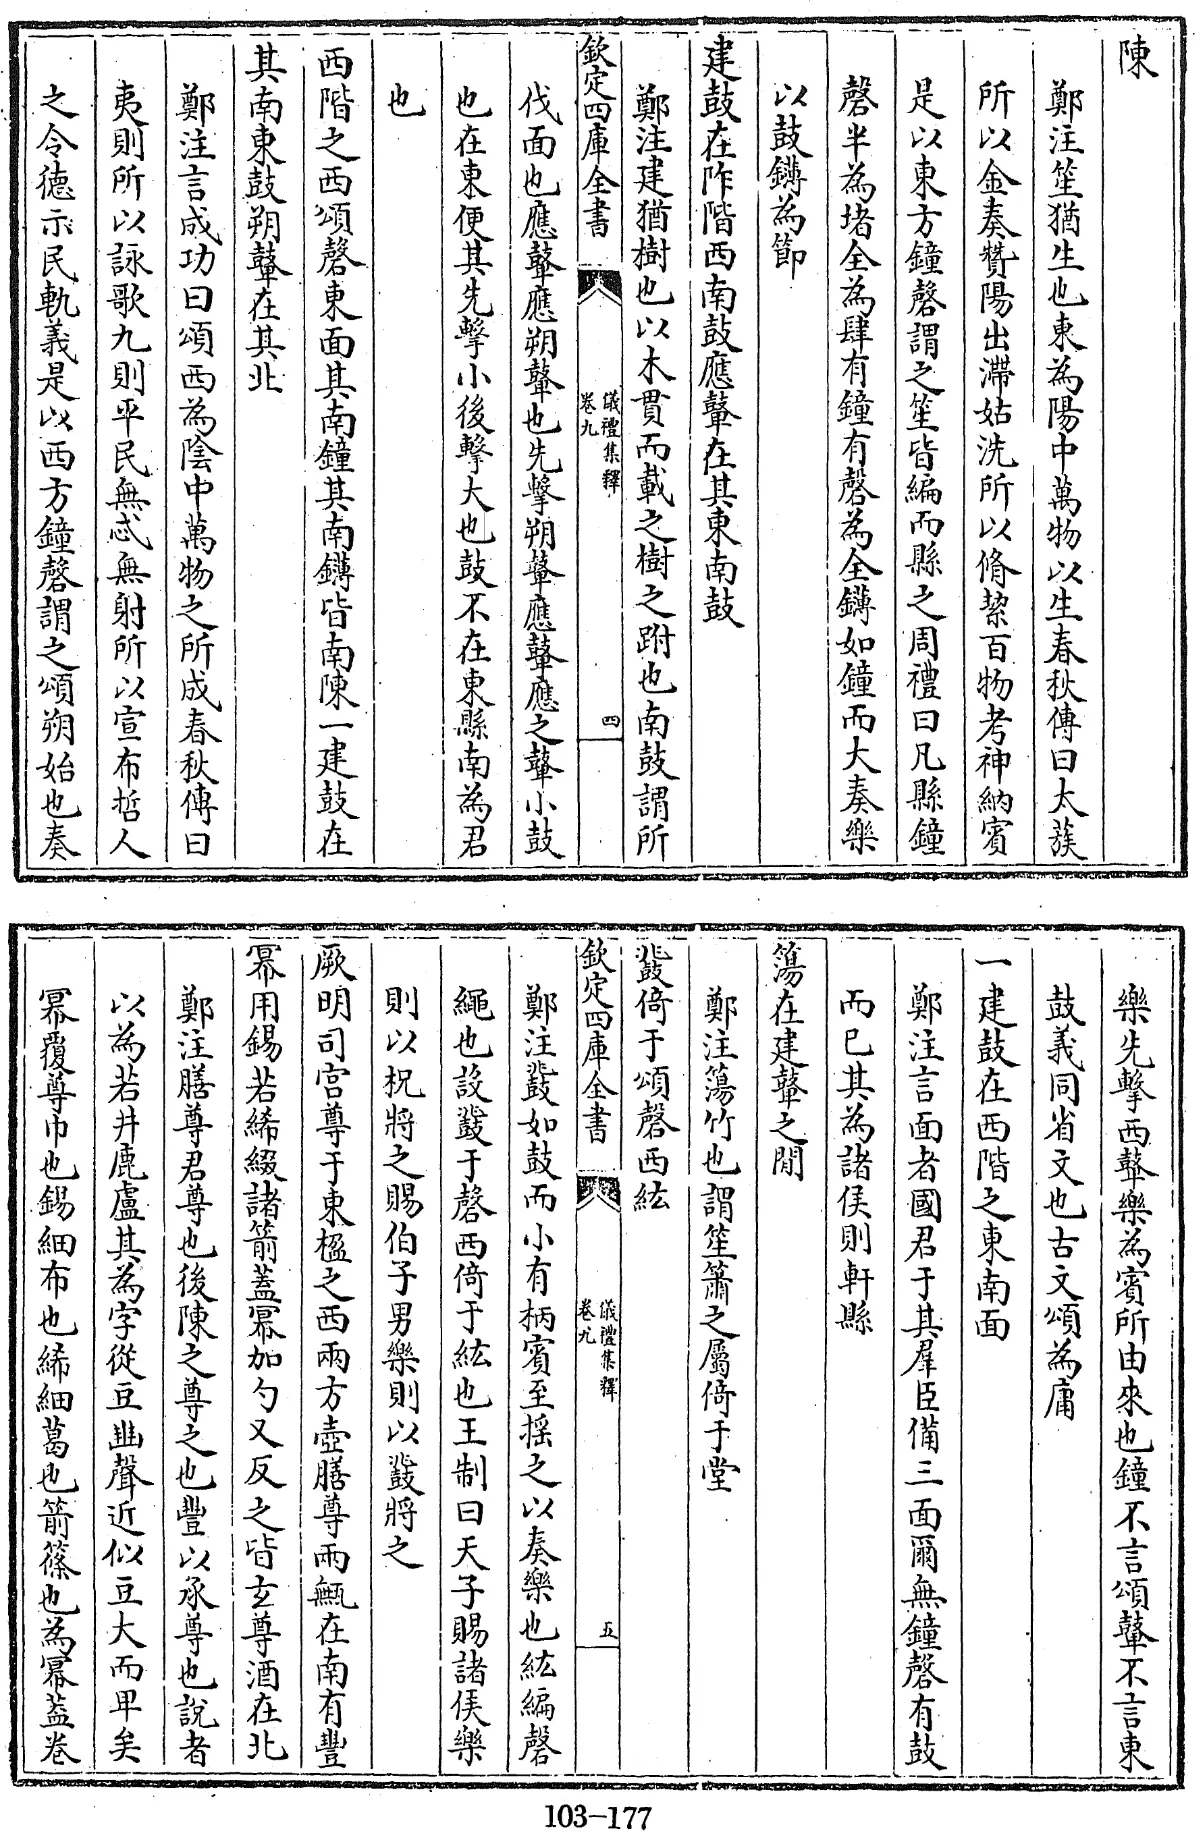 陳
鄭注笙猶生也東為陽中萬物以生春秋傳曰太蔟
所以金奏贊陽出滯姑洗所以脩絜百物考神納賓
是以東方鐘磬謂之笙皆編而縣之周禮曰凡縣鐘
磬半為堵全為肆有鐘有磬為全鑮如鐘而大奏樂
以鼓鑮為節
建鼓在阼階西南鼓應鼙在其東南鼓
鄭注建猶樹也以木貫而載之樹之跗也南鼓謂所
欽定四庫全書
儀禮集釋
卷九
四
伐面也應鼙應朔鼙也先擊朔鼙應鼙應之鼙小鼓
也在東便其先擊小後擊大也鼓不在東縣南為君
也
西階之西頌磬東面其南鐘其南鑮皆南陳一建鼓在
其南東鼓朔鼙在其北
鄭注言成功曰頌西為陰中萬物之所成春秋傳曰
夷則所以詠歌九則平民無忒無射所以宣布哲人
之令德示民軌義是以西方鐘磬謂之頌朔始也奏
樂先擊西鼙樂為賓所由來也鐘不言頌鼙不言東
鼓義同省文也古文頌為庸
一建鼓在西階之東南面
鄭注言面者國君于其羣臣備三面爾無鐘磬有鼓
而已其為諸侯則軒縣
簜在建鼙之閒
鄭注簜竹也謂笙簫之屬倚于堂
鼗倚于頌磬西紘
欽定四庫全書
儀禮集釋
卷九
五
鄭注鼗如鼓而小有柄賓至搖之以奏樂也紘編磬
繩也設鼗于磬西倚于紘也王制曰天子賜諸侯樂
則以柷將之賜伯子男樂則以鼗將之
厥明司宮尊于東楹之西兩方壺膳尊兩甒在南有豐
冪用錫若絺綴諸箭蓋冪加勺又反之皆玄尊酒在北
鄭注膳尊君尊也後陳之尊之也豐以承尊也說者
以為若井鹿盧其為字從豆𠁳聲近似豆大而卑矣
冪覆尊巾也錫細布也絺細葛也箭篠也為冪蓋卷
103-177